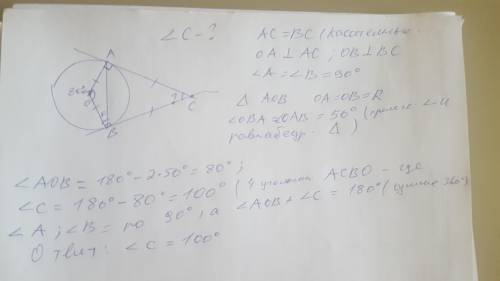 ∠C - ?
AC = BC (касательные
OA ⊥ AC ; OB ⊥ BC
∠A = ∠B = 90°
A
80°
O
B
?
C
Δ AOB OA = OB = R
∠OBA = OAB = 50° ( ∠-и
равнобедр. Δ )
∠AOB = 180° - 2·50° = 80° ;
∠C = 180° - 80° = 100° ( 4 угольник ACBO - где
∠A ; ∠B = по 90°, а ∠AOB + ∠C = 180° ( 360°)
Ответ: ∠C = 100°